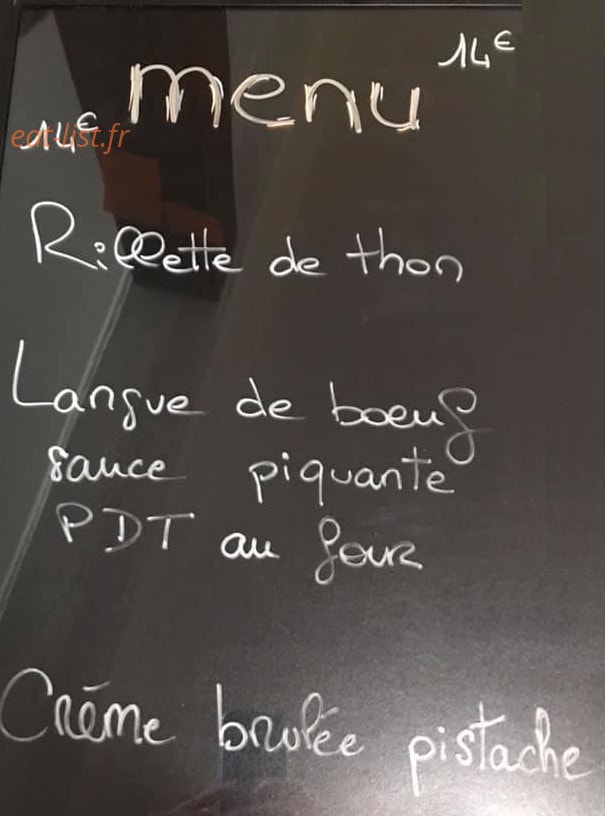 14€
menu
14€
eat-list.fr
Rillette de thon
Langue de boeuf
sauce piquante
PDT au four
Créme brulée pistache